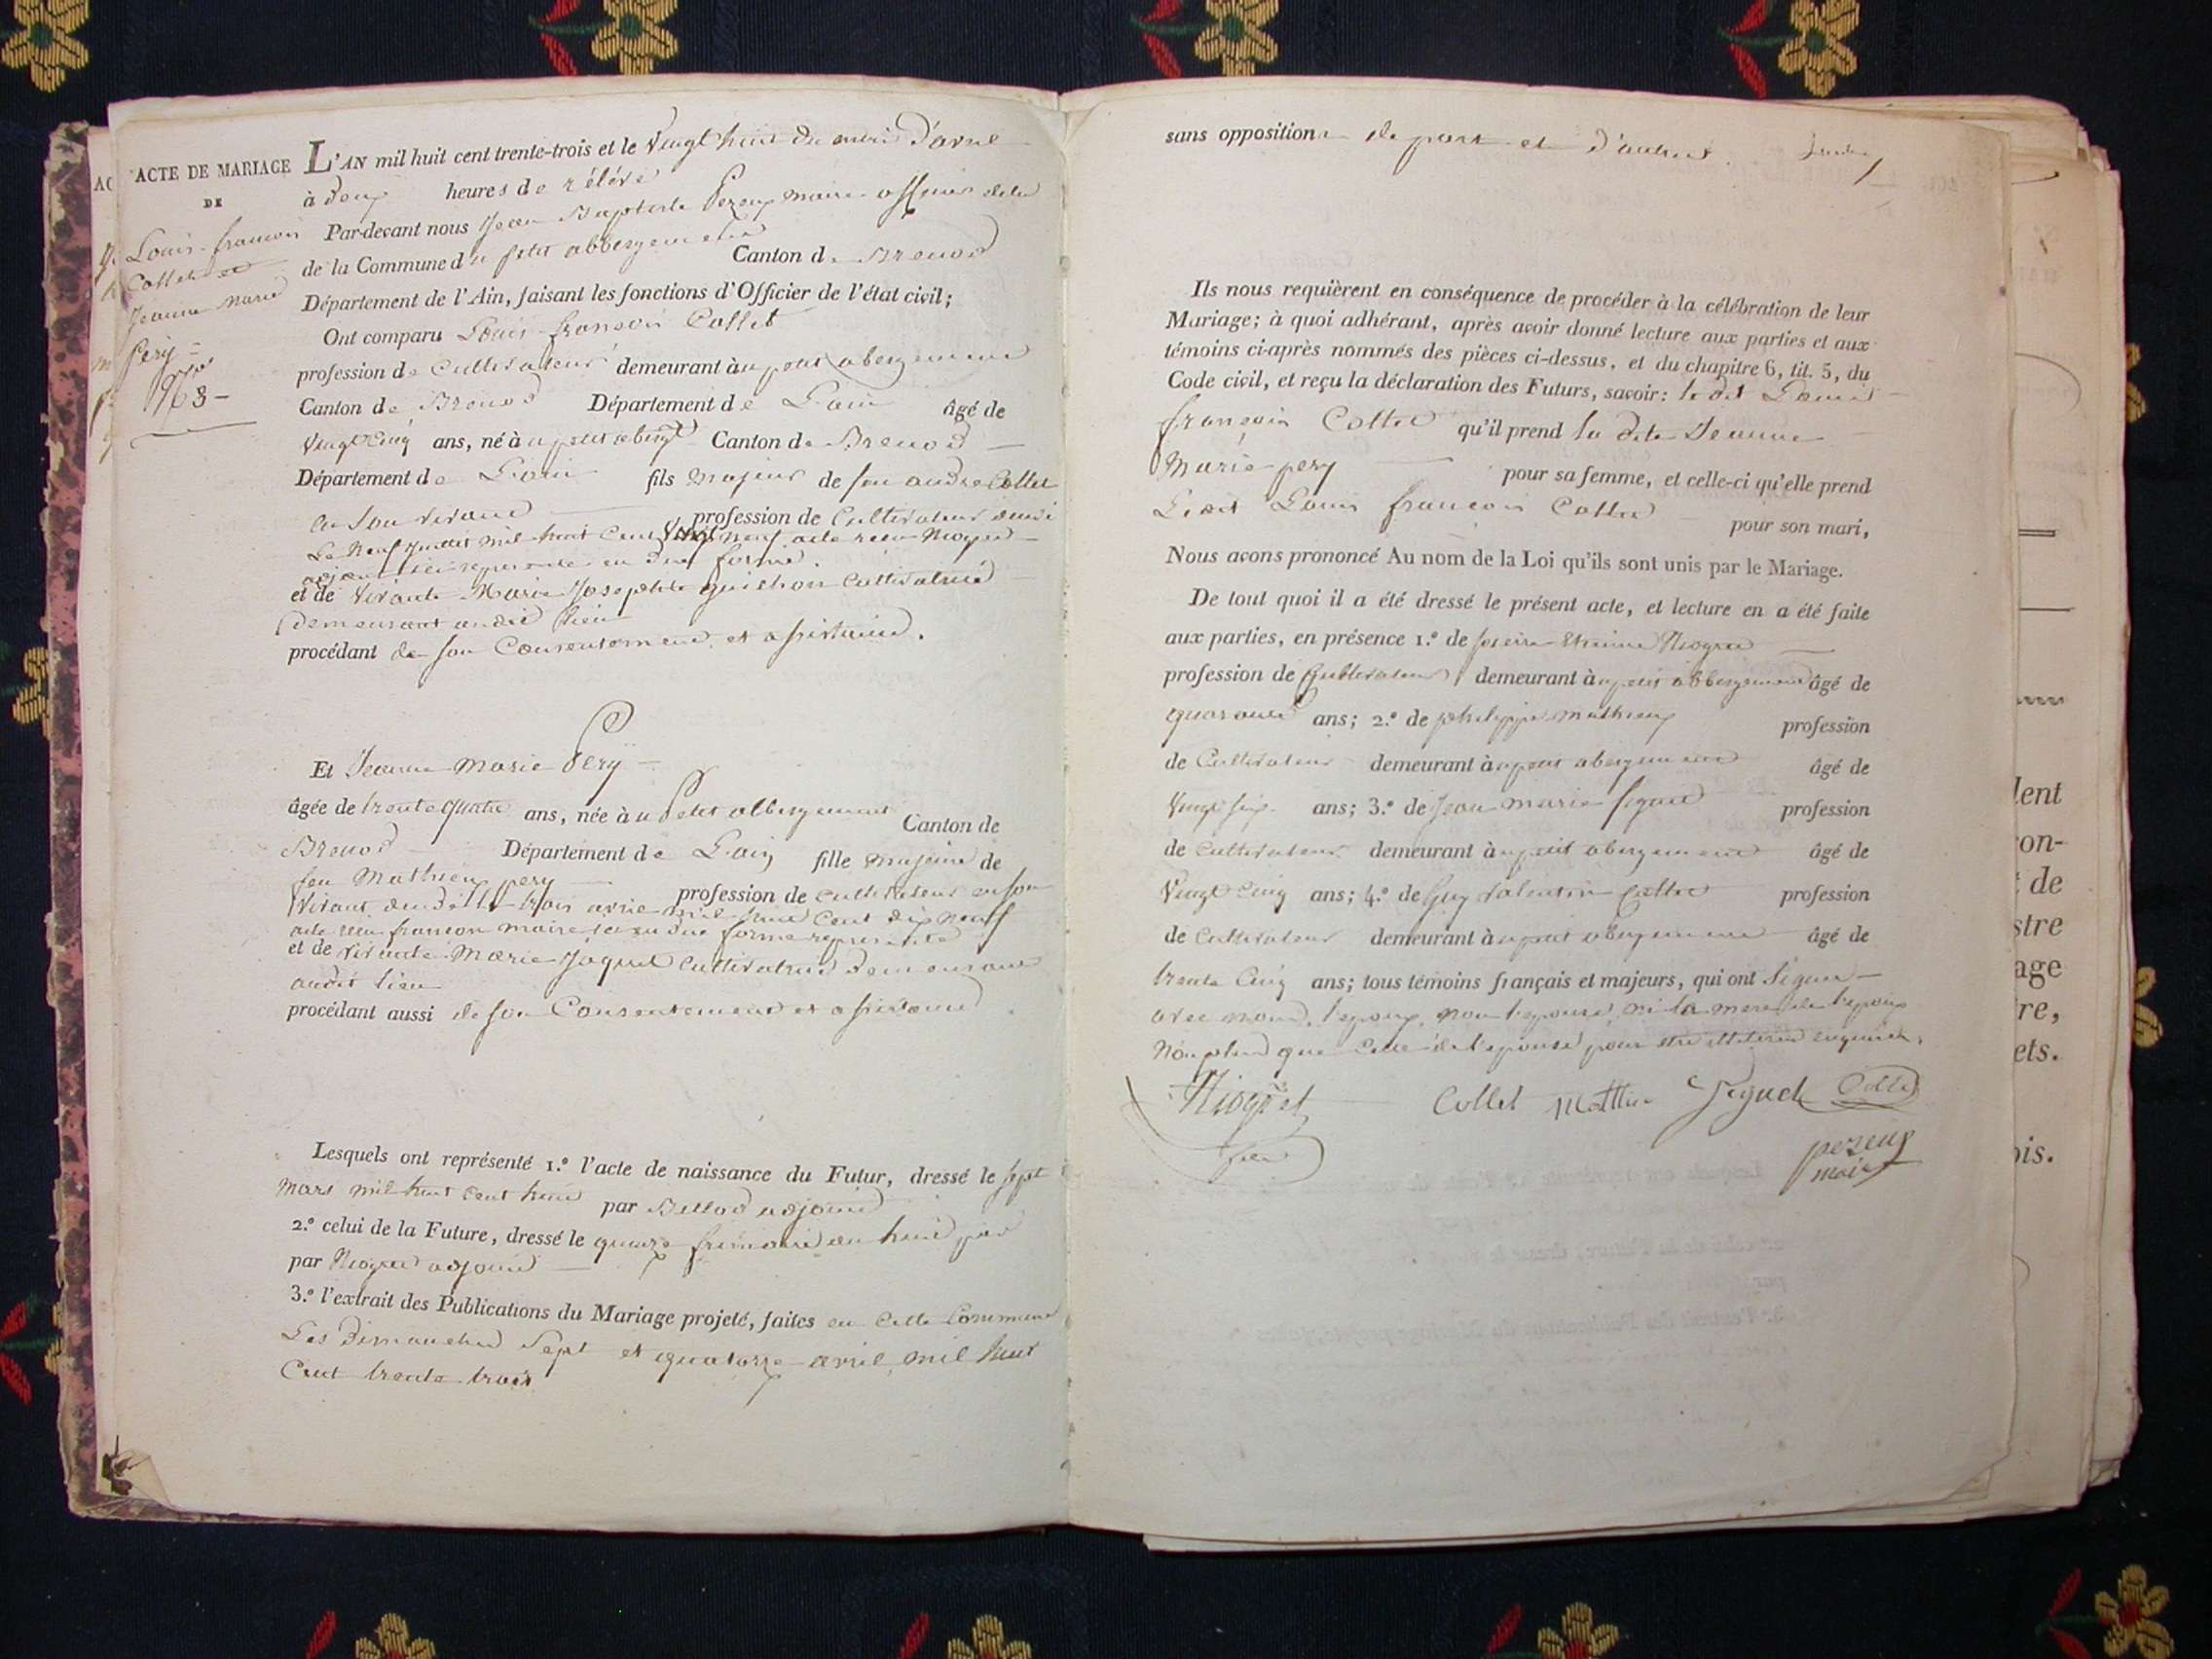 ACTE DE MARIAGE
DE
Louis françois
Collet et
Jeanne Marie
Pery =
N° 8 -
L'AN mil huit cent trente-trois et le vingt huit du mois d'avril
à deux heures de rélévé
Par-devant nous Jean Baptiste Pezeux maire officier de la
de la Commune du petit abbergement Canton de Brenod
Département de l'Ain, faisant les fonctions d'Officier de l'état civil;
Ont comparu Louis françois Collet
profession de Cultivateur demeurant à u petit abergement
Canton de Brenod Département de L'ain âgé de
vingt Cinq ans, né à u petit abergt Canton de Brenod
Département de L'ain fils majeur de feu andre Collet
en son vivant profession de Cultivateur
Le Neuf juillet mil huit Cent vingt neuf acte reçu Niogret
adjoint ici representé en due forme.
et de vivante Marie Josephte guichon Cultivatrice
demeurant audit lieu
procédant de son Consentement et assistance.
Et Jeanne Marie Pery
âgée de trente quatre ans, née à u Petit abbergement Canton de
Brenod Département de L'ain fille majeure de
feu Mathieu pery profession de cultivateur en son
vivant trois avril mil huit Cent dix neuf
acte reçu françon maire ici en due forme representé
et de vivante Marie Jaquet Cultivatrice demeurant
audit lieu
procédant aussi de son Consentement et assistance
Lesquels ont représenté 1.° l'acte de naissance du Futur, dressé le sept
Mars mil huit cent huit par Billod adjoint
2.° celui de la Future, dressé le quinze frimaire an huit
par Niogret adjoint
3.° l'extrait des Publications du Mariage projeté, faites en Cette Commune
Les Dimanches Sept et quatorze avril mil huit
Cent trente trois
sans opposition de part et d'autres.
Ils nous requièrent en conséquence de procéder à la célébration de leur
Mariage; à quoi adhérant, après avoir donné lecture aux parties et aux
témoins ci-après nommés des pièces ci-dessus, et du chapitre 6, tit. 5, du
Code civil, et reçu la déclaration des Futurs, savoir: le dit Louis
françois Collet qu'il prend la dite Jeanne
Marie pery pour sa femme, et celle-ci qu'elle prend
Ledit Louis françois Collet pour son mari,
Nous avons prononcé Au nom de la Loi qu'ils sont unis par le Mariage.
De tout quoi il a été dressé le présent acte, et lecture en a été faite
aux parties, en présence 1.° de Niogret
profession de Cultivateur demeurant à u petit abbergement âgé de
quarante ans; 2.° de philippe mathieux profession
de Cultivateur demeurant à u petit abergement âgé de
vingt six ans; 3.° de Jean marie Seguet profession
de Cultivateur demeurant à u petit abergement âgé de
vingt Cinq ans; 4.° de Guy valentin Collet profession
de Cultivateur demeurant à u petit abergement âgé de
trente Cinq ans; tous témoins français et majeurs, qui ont signé
avec nous, l'epoux, non l'epouse, ni la mere de l'epoux
Non plus que celle de l'epouse pour etre illiteré enquises.
Niogret Collet Mathieu Seguet Collet
pezeux
maire
lent
on-
de
stre
age
re,
ets.
is.